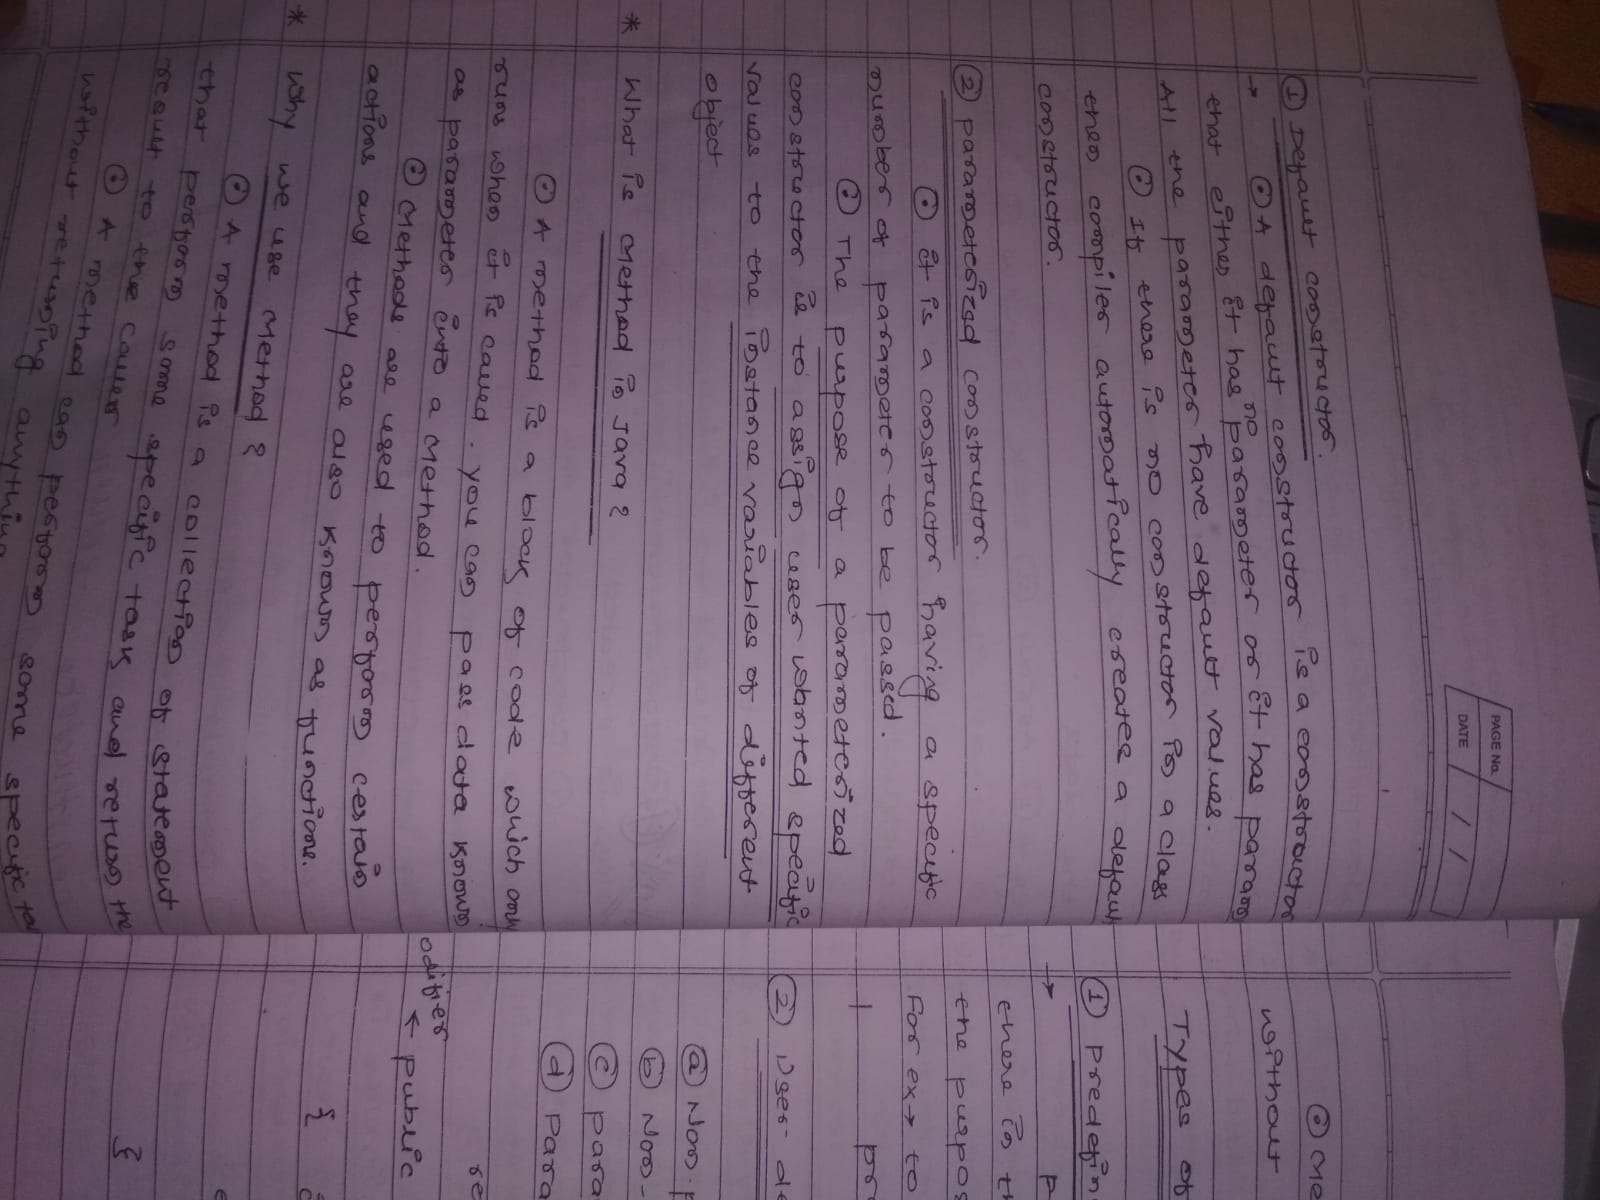 PAGE No.
DATE / /
① Default constructor.
→ ⊙ A default constructor is a constructor
that either it has no parameter or it has param
All the parameter have default values.
⊙ If there is no constructor in a class
then compiler automatically creates a defaul
constructor.
② parameterized constructor.
⊙ it is a constructor having a specific
number of parameter to be passed.
⊙ The purpose of a parameterized
constructor is to assign user wanted specific
values to the instance variables of different
object
* What is Method in Java?
⊙ A method is a block of code which only
runs when it is called. you can pass data known
as parameter into a Method.
⊙ Methods are used to perform certain
actions and they are also known as functions.
* Why we use Method?
⊙ A method is a collection of statement
that perform some specific task and return the
result to the caller
⊙ A method can perform some specific
without returning anything
⊙ Me
without
Types of
① predefin
→ P
there in th
the purpos
For ex → to
② User-de
ⓐ Non-p
ⓑ Non-
ⓒ para
ⓓ Para
re
odifier ← public
{
{